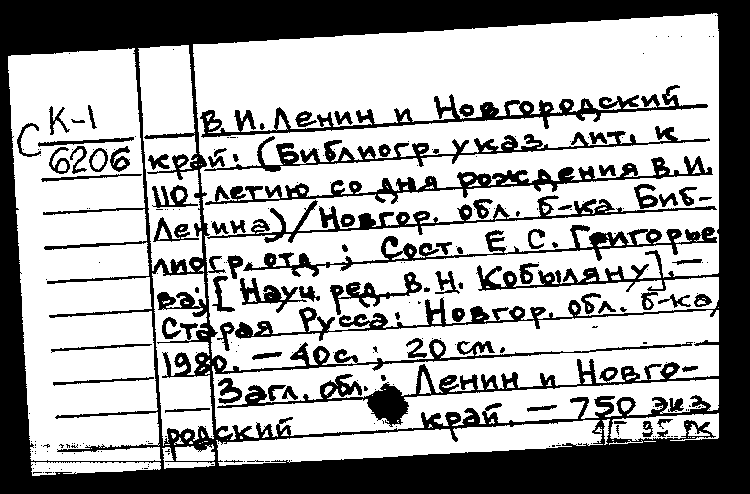 С К-1
6206
В.И. Ленин и Новгородский
край: (Библиогр. указ. лит. к
110-летию со дня рождения В.И.
Ленина) / Новгор. обл. б-ка. Биб-
лиогр. отд. ; Сост. Е.С. Григорье-
ва; [Науч. ред. В.Н. Кобыляну]. —
Старая Русса: Новгор. обл. б-ка,
1980. — 40 с. ; 20 см.
Загл. обл.: Ленин и Новго-
родский край. — 750 экз